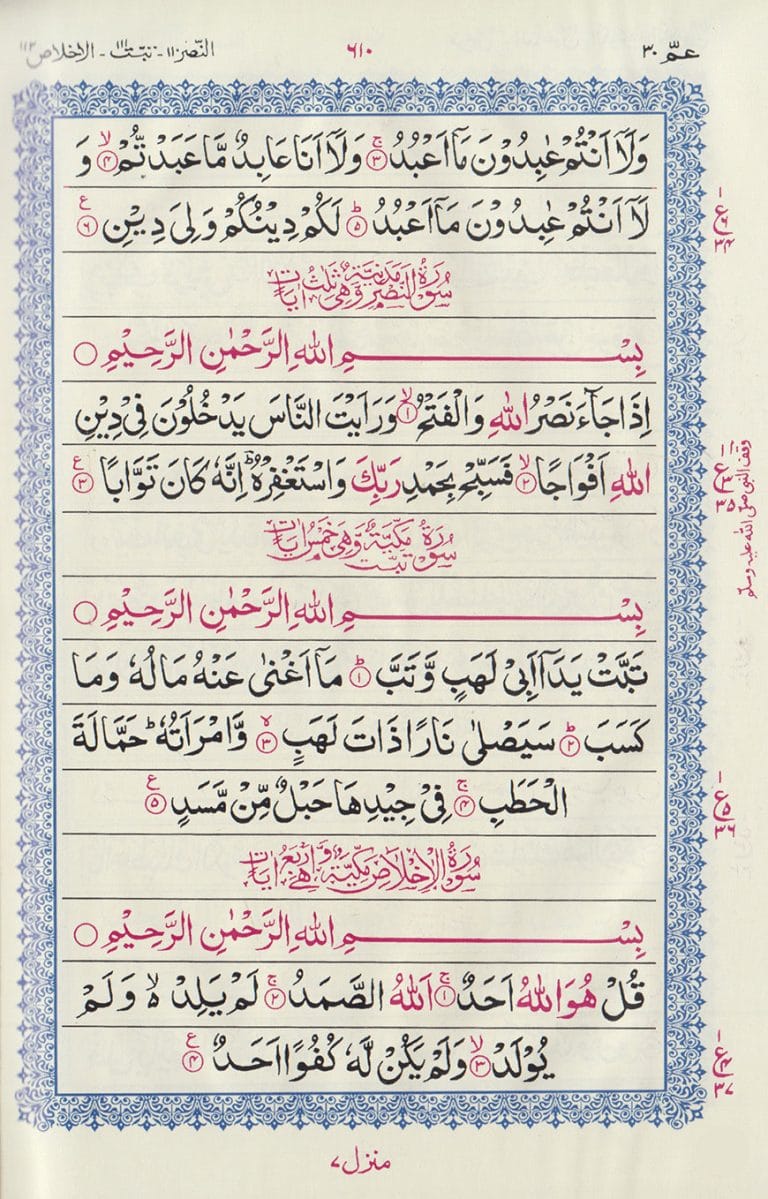 عمّ ٣٠
٦١٠
النّصر ١١٠ - تبّت ١١١ - الاخلاص ١١٢
وَلَاۤ اَنْتُمْ عٰبِدُوْنَ مَاۤ اَعْبُدُ ۚ﴿۳﴾ وَلَاۤ اَنَا عَابِدٌ مَّا عَبَدْتُّمْ ۙ﴿۴﴾ وَ
لَاۤ اَنْتُمْ عٰبِدُوْنَ مَاۤ اَعْبُدُ ؕ﴿۵﴾ لَكُمْ دِيْنُكُمْ وَلِىَ دِيْنِ ﴿۶﴾ ع
سُوْرَةُ النَّصْرِ مَدَنِيَّةٌ وَّهِىَ ثَلٰثُ اٰيَاتٍ
بِسْمِ اللهِ الرَّحْمٰنِ الرَّحِيْمِ ○
اِذَا جَآءَ نَصْرُ اللهِ وَالْفَتْحُ ۙ﴿۱﴾ وَرَاَيْتَ النَّاسَ يَدْخُلُوْنَ فِىْ دِيْنِ
اللهِ اَفْوَاجًا ۙ﴿۲﴾ فَسَبِّحْ بِحَمْدِ رَبِّكَ وَاسْتَغْفِرْهُ ؕ اِنَّهٗ كَانَ تَوَّابًا ﴿۳﴾ ع
سُوْرَةُ تَبَّتْ مَكِّيَّةٌ وَّهِىَ خَمْسُ اٰيَاتٍ
بِسْمِ اللهِ الرَّحْمٰنِ الرَّحِيْمِ ○
تَبَّتْ يَدَاۤ اَبِىْ لَهَبٍ وَّتَبَّ ؕ﴿۱﴾ مَاۤ اَغْنٰى عَنْهُ مَالُهٗ وَمَا
كَسَبَ ؕ﴿۲﴾ سَيَصْلٰى نَارًا ذَاتَ لَهَبٍ ۖ﴿۳﴾ وَّامْرَاَتُهٗ ؕ حَمَّالَةَ
الْحَطَبِ ۚ﴿۴﴾ فِىْ جِيْدِهَا حَبْلٌ مِّنْ مَّسَدٍ ﴿۵﴾ ع
سُوْرَةُ الْاِخْلَاصِ مَكِّيَّةٌ وَّهِىَ اَرْبَعُ اٰيَاتٍ
بِسْمِ اللهِ الرَّحْمٰنِ الرَّحِيْمِ ○
قُلْ هُوَ اللهُ اَحَدٌ ۚ﴿۱﴾ اَللهُ الصَّمَدُ ۚ﴿۲﴾ لَمْ يَلِدْ ۙ۬ وَلَمْ
يُوْلَدْ ۙ﴿۳﴾ وَلَمْ يَكُنْ لَّهٗ كُفُوًا اَحَدٌ ﴿۴﴾ ع
وقف النبي صلى الله عليه وسلم
منزل ٧